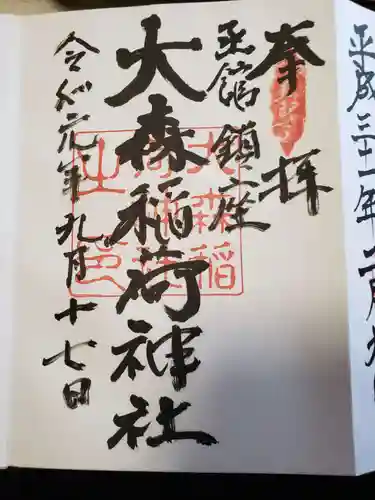 平成三十一年二月
奉拝
函館鎮座
大森稲荷神社
令和元年九月十七日
大森稲
之